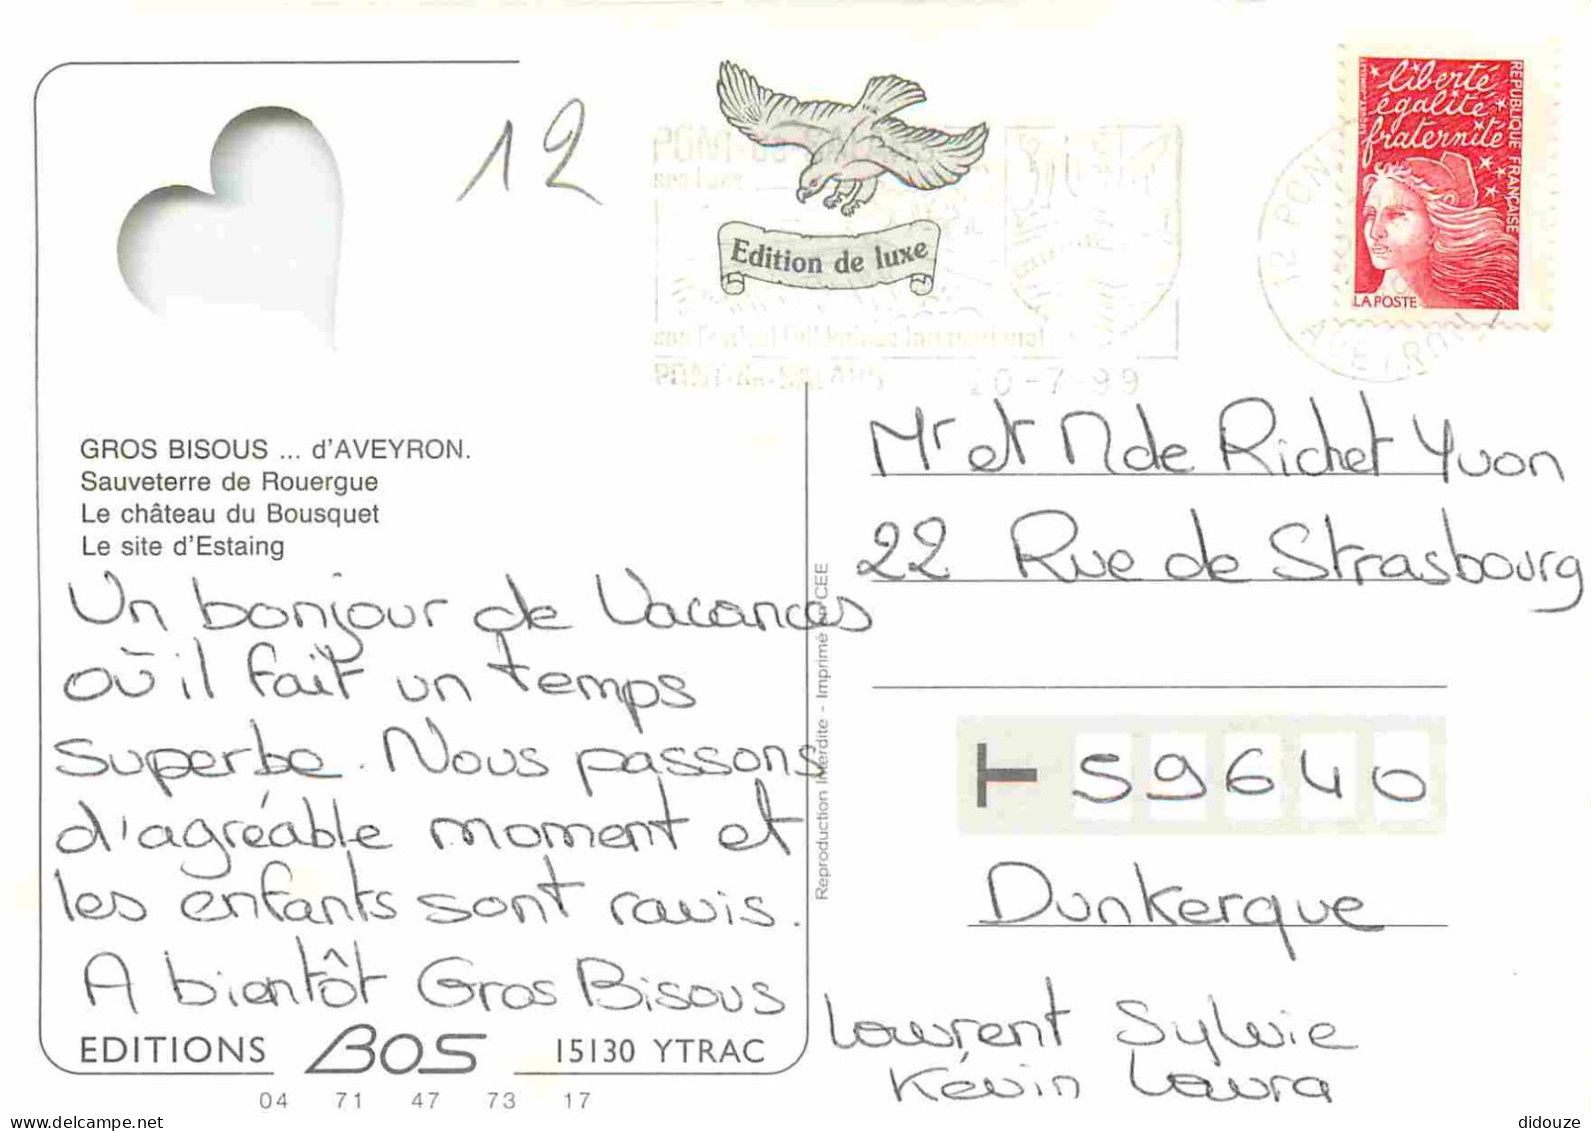 12
Edition de luxe
PONT-de-SALARS
son Festival Folklorique International
PONT-de-SALARS 20-7-99
12 PONT
AVEYRON
liberté
égalité
fraternité
RÉPUBLIQUE FRANÇAISE
LA POSTE
GROS BISOUS ... d'AVEYRON.
Sauveterre de Rouergue
Le château du Bousquet
Le site d'Estaing
Un bonjour de Vacances
où il fait un temps
superbe. Nous passons
d'agréable moment et
les enfants sont ravis.
A bientôt Gros Bisous
Laurent Sylvie
Kévin Laura
EDITIONS BOS 15130 YTRAC
04 71 47 73 17
Reproduction Interdite - Imprimé en CEE
Mr et Mde Richet Yvon
22 Rue de Strasbourg
59640
Dunkerque
didouze